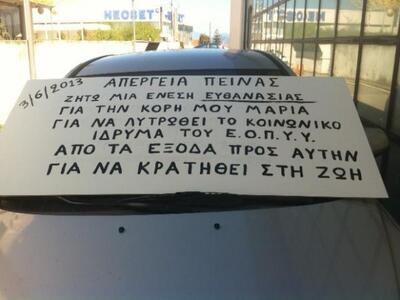 NEOBET
3/6/2013 ΑΠΕΡΓΕΙΑ ΠΕΙΝΑΣ
ΖΗΤΩ ΜΙΑ ΕΝΕΣΗ ΕΥΘΑΝΑΣΙΑΣ
ΓΙΑ ΤΗΝ ΚΟΡΗ ΜΟΥ ΜΑΡΙΑ
ΓΙΑ ΝΑ ΛΥΤΡΩΘΕΙ ΤΟ ΚΟΙΝΩΝΙΚΟ
ΙΔΡΥΜΑ ΤΟΥ Ε.Ο.Π.Υ.Υ.
ΑΠΟ ΤΑ ΕΞΟΔΑ ΠΡΟΣ ΑΥΤΗΝ
ΓΙΑ ΝΑ ΚΡΑΤΗΘΕΙ ΣΤΗ ΖΩΗ